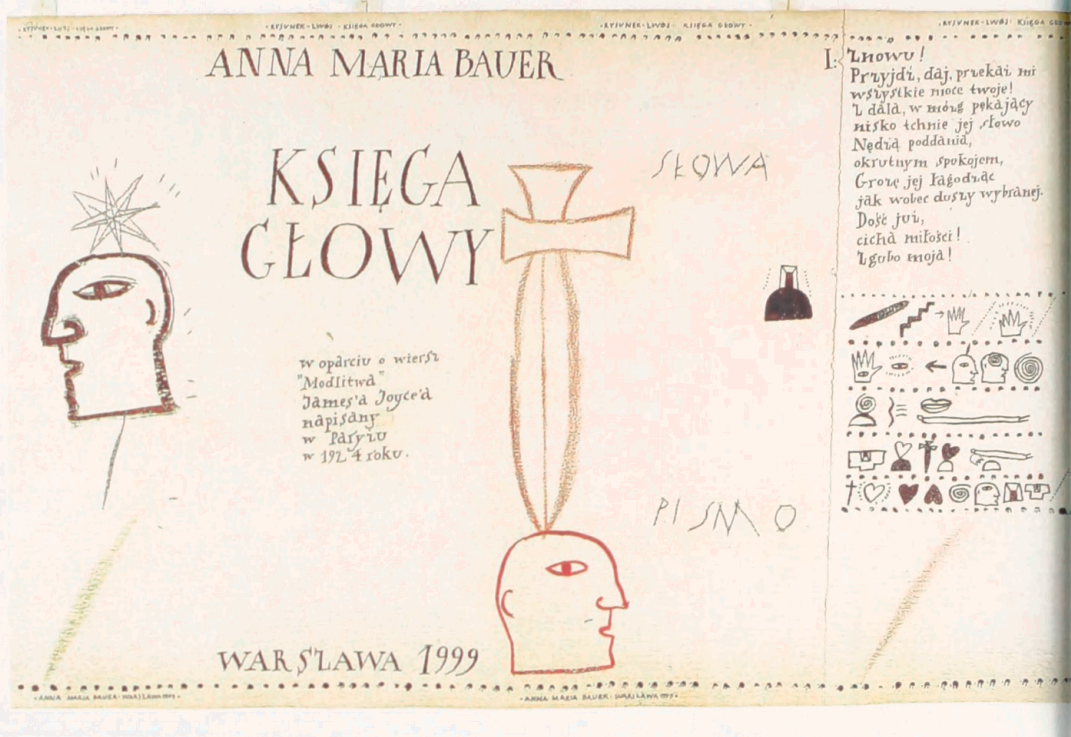 RYSUNEK-ZWÓJ · KSIĘGA GŁOWY
RYSUNEK-ZWÓJ · KSIĘGA GŁOWY
RYSUNEK-ZWÓJ · KSIĘGA GŁOWY
RYSUNEK-ZWÓJ · KSIĘGA
ANNA MARIA BAUER
KSIĘGA
GŁOWY
w oparciu o wiersz
"Modlitwa"
James'a Joyce'a
napisany
w Paryżu
w 1924 roku.
WARSZAWA 1999
SŁOWA
PISMO
I:
Znowu!
Przyjdź, daj, przekaż mi
wszystkie moce twoje!
Z dala, w mózg pękający
nisko tchnie jej słowo
Nędzą poddania,
okrutnym spokojem,
Grozę jej łagodząc
jak wobec duszy wybranej.
Dość już,
cicha miłości!
Zgubo moja!
· ANNA MARIA BAUER · WARSZAWA 1999 ·
· ANNA MARIA BAUER · WARSZAWA 1999 ·